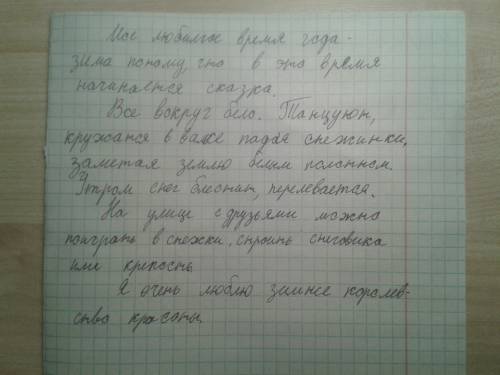 Мое любимое время года -
зима потому, что в это время
начинается сказка.
Все вокруг бело. Танцуют,
кружатся в вальсе падая снежинки,
заметая землю белым полотном.
Утром снег блестит, перелевается.
На улице с друзьями можно
поиграть в снежки, строить снеговика
или крепость
Я очень люблю зимнее королев-
ство красоты.